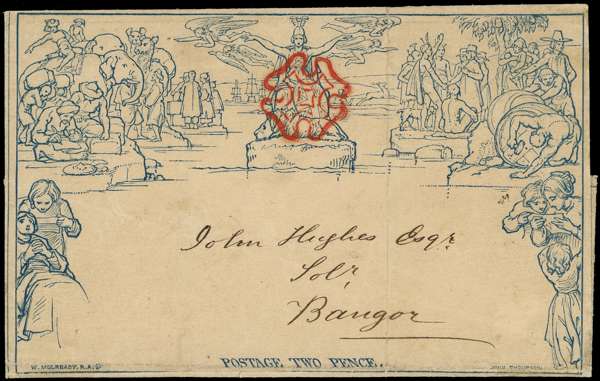 John Hughes Esqr.
Solr.
Bangor
POSTAGE TWO PENCE.
W. MULREADY, R.A.
JOHN THOMPSON